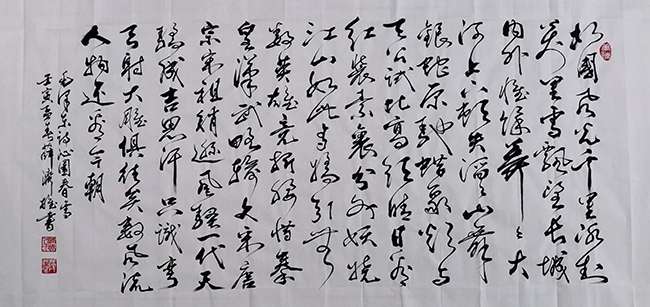 北國風光千里冰封
万里雪飘望长城
内外惟馀莽〻大
河上下顿失滔〻山舞
银蛇原驰蜡象欲与
天公试比高须晴日看
红装素裹分外妖娆
江山如此多娇引无
数英雄竞折腰惜秦
皇汉武略输文采唐
宗宋祖稍逊风骚一代天
骄成吉思汗只识弯
弓射大雕俱往矣数风流
人物还看今朝
毛泽东诗沁园春雪
壬寅春薛书